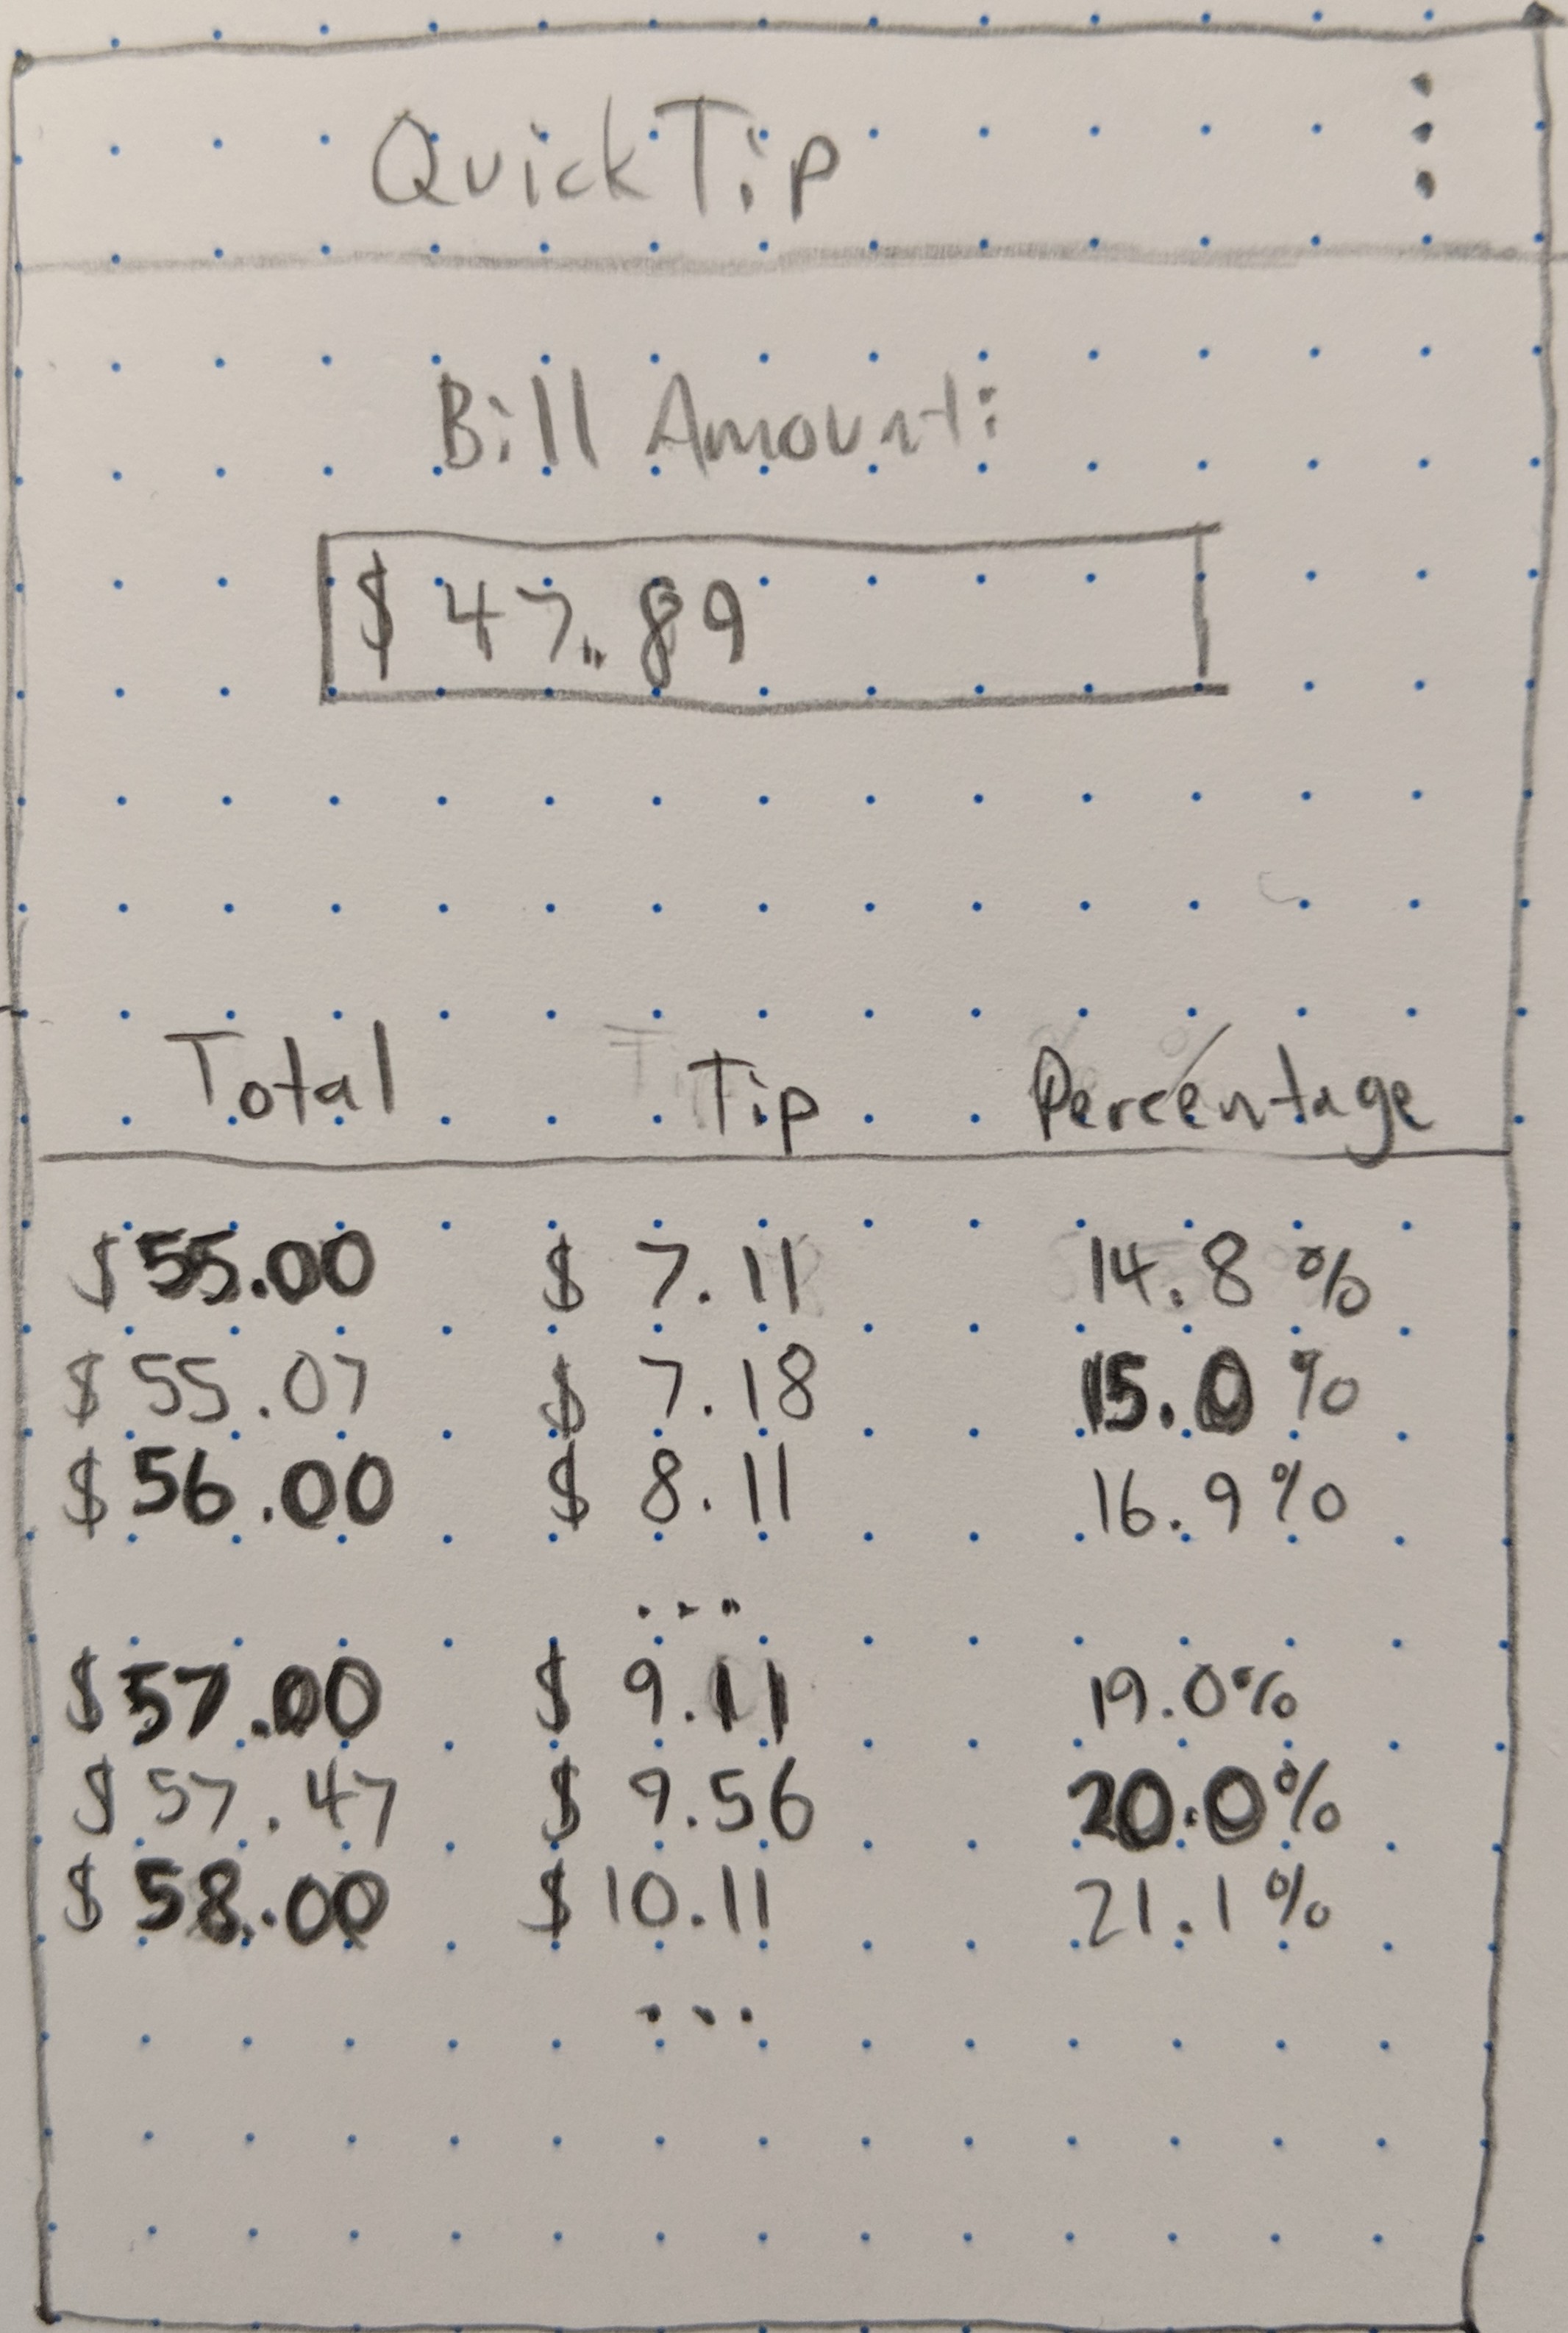 QuickTip
Bill Amount:
$ 47.89
Total Tip Percentage
$ 55.00 $ 7.11 14.8 %
$ 55.07 $ 7.18 15.0 %
$ 56.00 $ 8.11 16.9 %
...
$ 57.00 $ 9.11 19.0%
$ 57.47 $ 9.56 20.0%
$ 58.00 $ 10.11 21.1 %
...